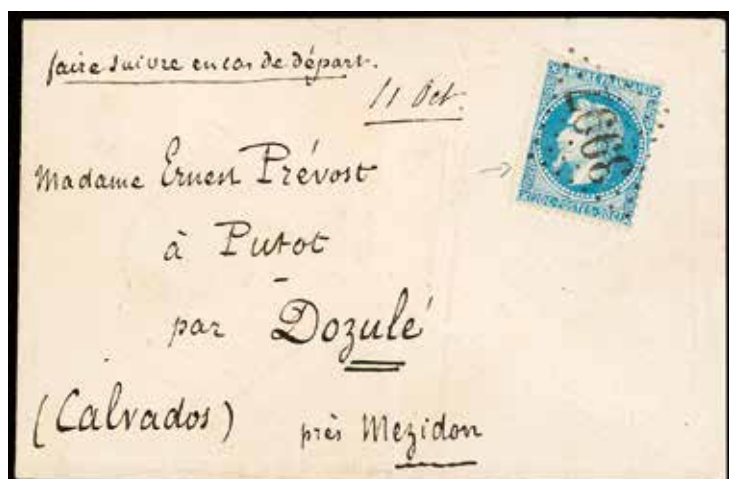 faire suivre en cas de départ.
11 Oct.
3997
Madame Ernest Prévost
à Putot
par Dozulé
(Calvados) près Mezidon